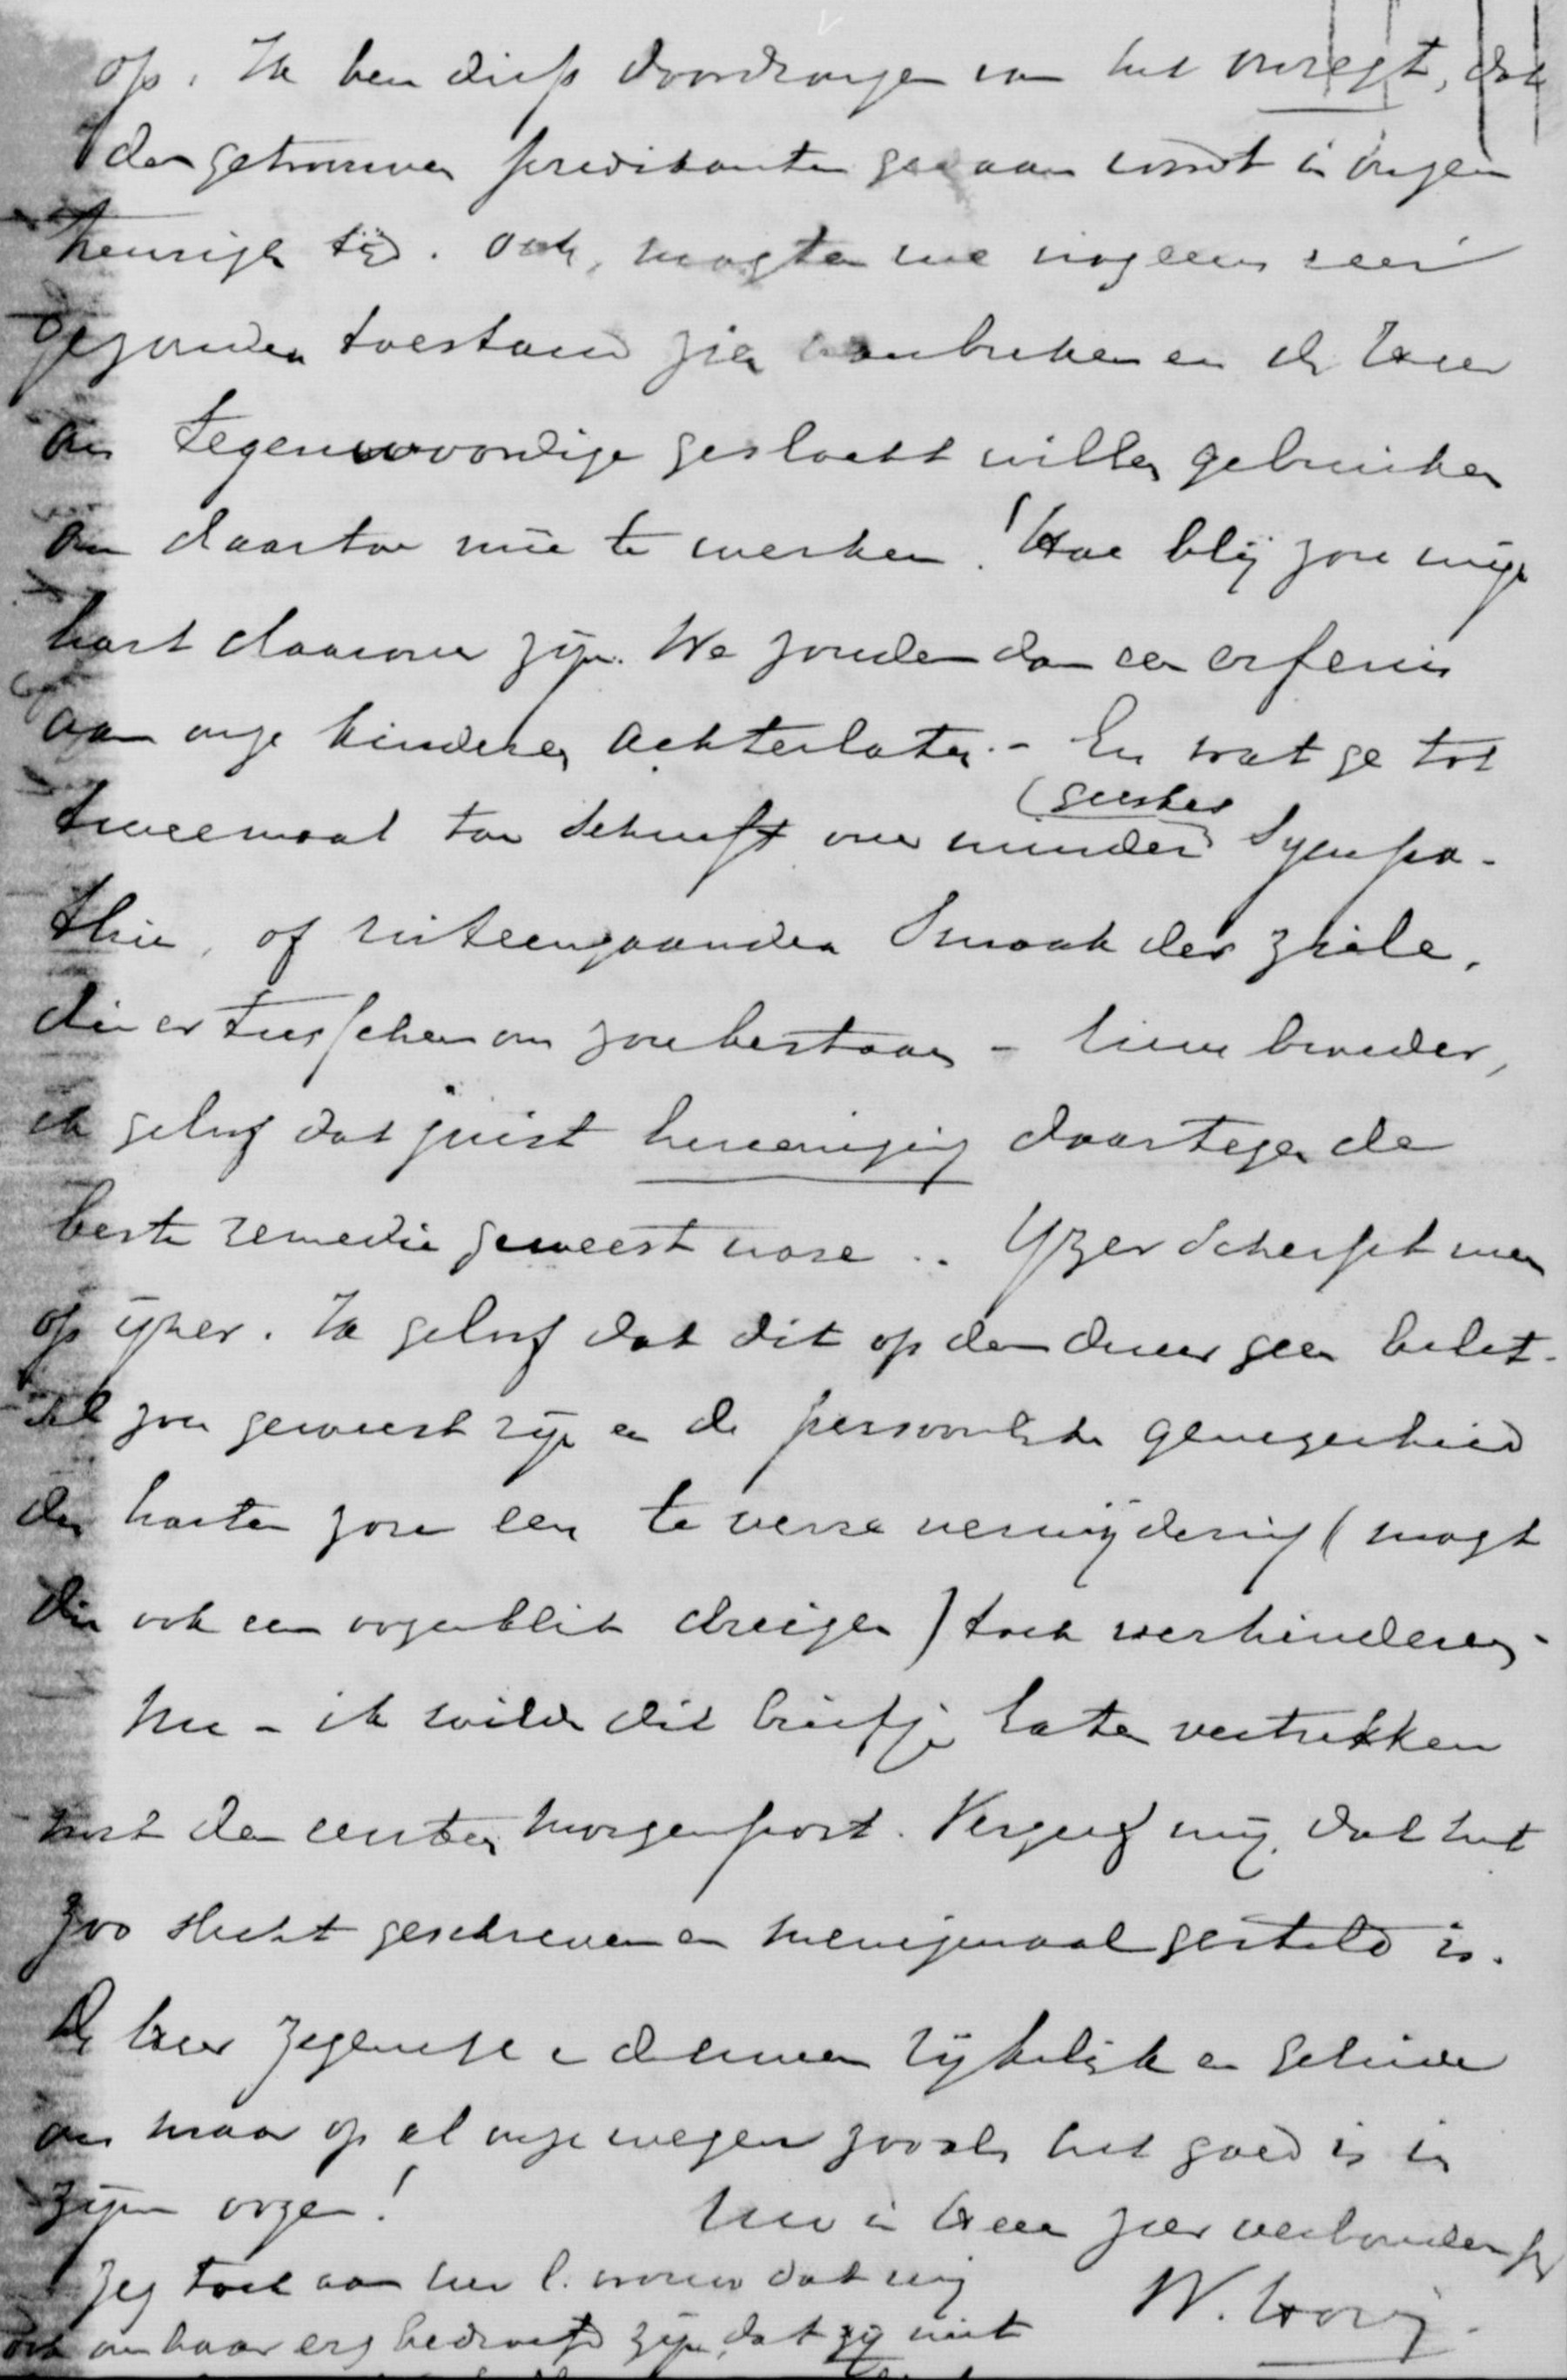 op. Ik ben diep doordrongen van het onregt, dat
den getrouwen predikanten gedaan wordt in onzen
treurigen tijd. Och, mogten we nog eens een
gezonden toestand zien aanbreken en de Heer
ons tegenwoordige geslacht willen gebruiken
om daartoe mee te werken! Hoe blij zou mijn
hart daarover zijn. We zouden dan een erfenis
aan onze kinderen achterlaten. - En wat ge tot
tweemaal toe schreeft over minder (geestes)
sympa-
thie, of uiteengaanden smaak der ziele,
die er tusschen ons zou bestaan - lieve broeder,
ik geloof dat juist hereeniging daartegen de
beste remedie geweest ware.. Yzer scherpt men
op ijzer. Ik geloof dat dit op den duur geen belet-
sel zou geweest zijn en de persoonlijke genegenheid
der harten zou een te verre verwijdering (mogt
die ook een oogenblik dreigen) toch verhinderen -
Nu - ik wilde dit briefje laten vertrekken
met de eerste morgenpost. Vergeef mij dat het
zoo slecht geschreven en menigmaal gesteld is.
De Heer zegene u en de uwen rijkelijk en geleide
ons maar op al onze wegen zooals het goed is in
zijne oogen!
Uw in Heer zeer verbonden
Zeg toch aan uw l. vrouw dat wij
W. Hovy.
ook om haar erg bedroefd zijn, dat zij niet